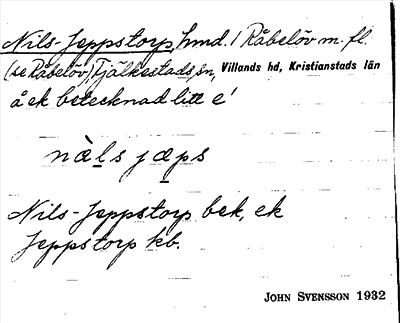 Nils-Jeppstorp, hmd. 1 Råbelöv m. fl.
(se Råbelöv), Fjälkestads sn, Villands hd, Kristianstads län
å ek betecknad litt e'
næ̀ls jæps
Nils-Jeppstorp bek, ek
Jeppstorp kb.
JOHN SVENSSON 1932